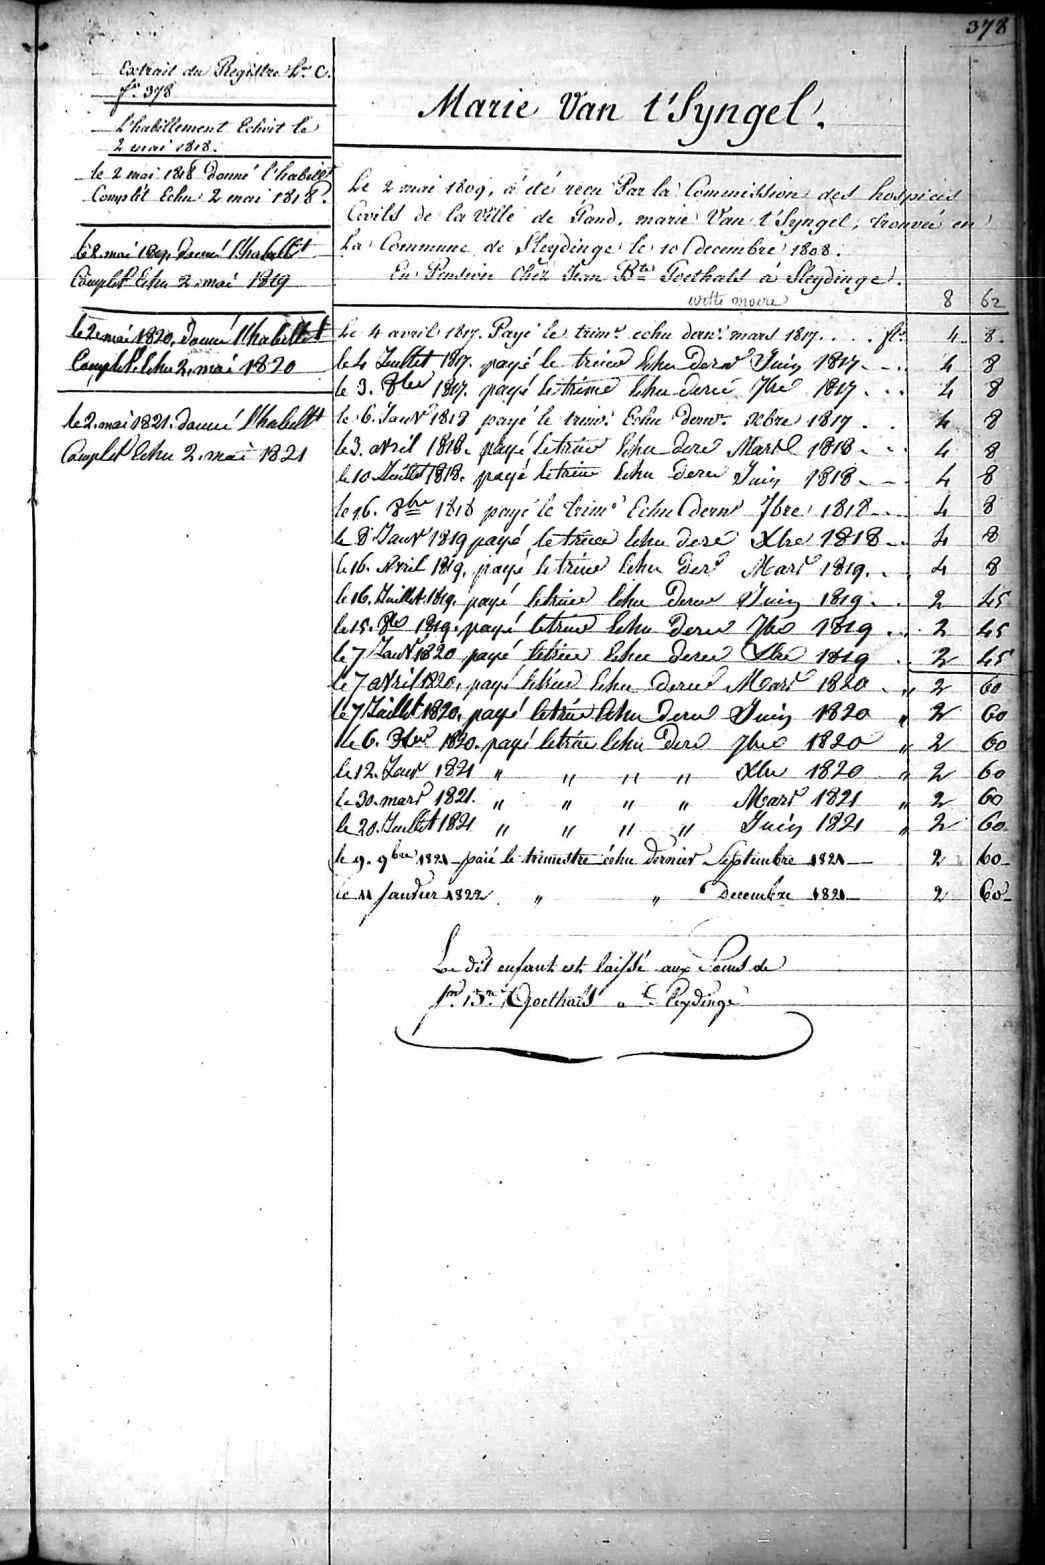 378
Extrait du Registre Lra C.
fo. 378
L'habillement Echoit le
2 mai 1818.
le 2 mai 1818 donné l'habillt
Complèt Echu 2 mai 1818.
le 2 mai 1819, donné l'habillt
Complet Echu 2 mai 1819
le 2 mai 1820, donné l'habillet
Complet Echu 2, mai 1820
le 2. mai 1821. donné l'habillt
Complet Echu 2. mai 1821
Marie Van t'Syngel.
Le 2 mai 1809, à été reçu Par la Commission des hospices
Civils de la Ville de Gand, marie Van t'Syngel, trouvée en
La Commune de Sleydinge le 10 Decembre 1808.
En Pension Chéz Jean Bte Goethals à Sleydinge.
witte moere 8 62
Le 4 avril 1817. Payé le trime echu dern. mars 1817. . . . fs. 4. 8.
le 4 Juillet 1817. payé le trime Echu dern Juin 1817 - . . 4 8
le 3. 8ber 1817. payé le trime Echu dern 7bre 1817 . . . 4 8
le 6. Janvr 1818 payé le trime Echu dernr. xbre 1817 . . 4 8
le 3. avril 1818. payé le trime Echu dern Mars 1818 . . 4 8
le 10 Juillet 1818. payé le trime Echu dern Juin 1818 - - . 4 8
le 16. 8bre 1818 payé le trime Echu dern 7bre 1818 . . 4 8
le 8 Janvr 1819 payé le trime Echu dern Xbre 1818 . . 4 8
le 16. Avril 1819. payé le trime Echu dern Mars 1819. . . 4 8
le 16. Juillet 1819. payé le trime Echu dern Juin 1819 . . 2 45
le 15. 8bre 1819. payé le trime Echu dern 7bre 1819 . . . 2 45
le 7 Janvr 1820 payé le trime Echu dern Xbre 1819 . . 2 45
le 7 avril 1820, payé le trime Echu dern Mars 1820 . " 2 60
le 7 Juillet 1820. payé le trime Echu dern Juin 1820 " 2 60
le 6. 8ber 1820. payé le trime Echu dern 7bre 1820 " 2 60
le 12. Janv 1821 " " " " Xbre 1820 " 2 60
le 30. mars 1821. " " " " Mars 1821 " 2 60
le 20. Juillet 1821 " " " " Juin 1821 " 2 60.
le 9. 9bre 1821 - paié le trimestre échu dernier Septembre 1821 — 2 60-
le 11 Janvier 1822 " " Decembre 1821 — 2 60-
Le dit enfant est laissé aux Soins de
Jn Bte Goethals a Sleydinge